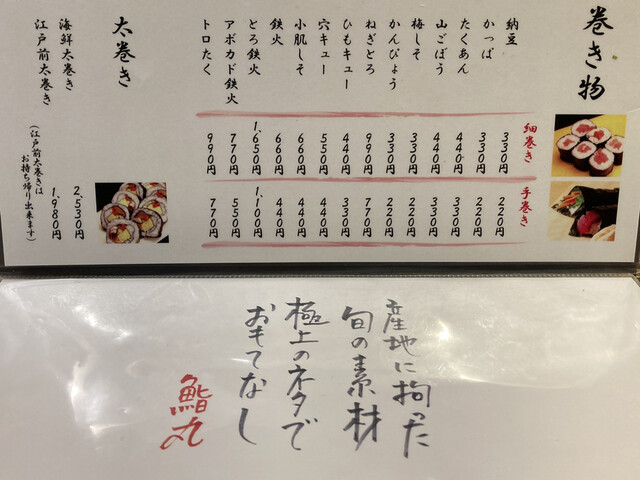 巻き物
細巻き
手巻き
納豆 330円 220円
かっぱ 330円 220円
たくあん 440円 330円
山ごぼう 440円 330円
梅しそ 330円 220円
かんぴょう 330円 220円
ねぎとろ 990円 770円
ひもキュー 440円 330円
穴キュー 550円 440円
小肌しそ 660円 440円
鉄火 660円 440円
とろ鉄火 1,650円 1,100円
アボカド鉄火 770円 550円
トロたく 990円 770円
太巻き
海鮮太巻き 2,530円
江戸前太巻き 1,980円
(江戸前太巻きは
お持ち帰り出来ます)
産地に拘った
旬の素材
極上のネタで
おもてなし
鮨丸